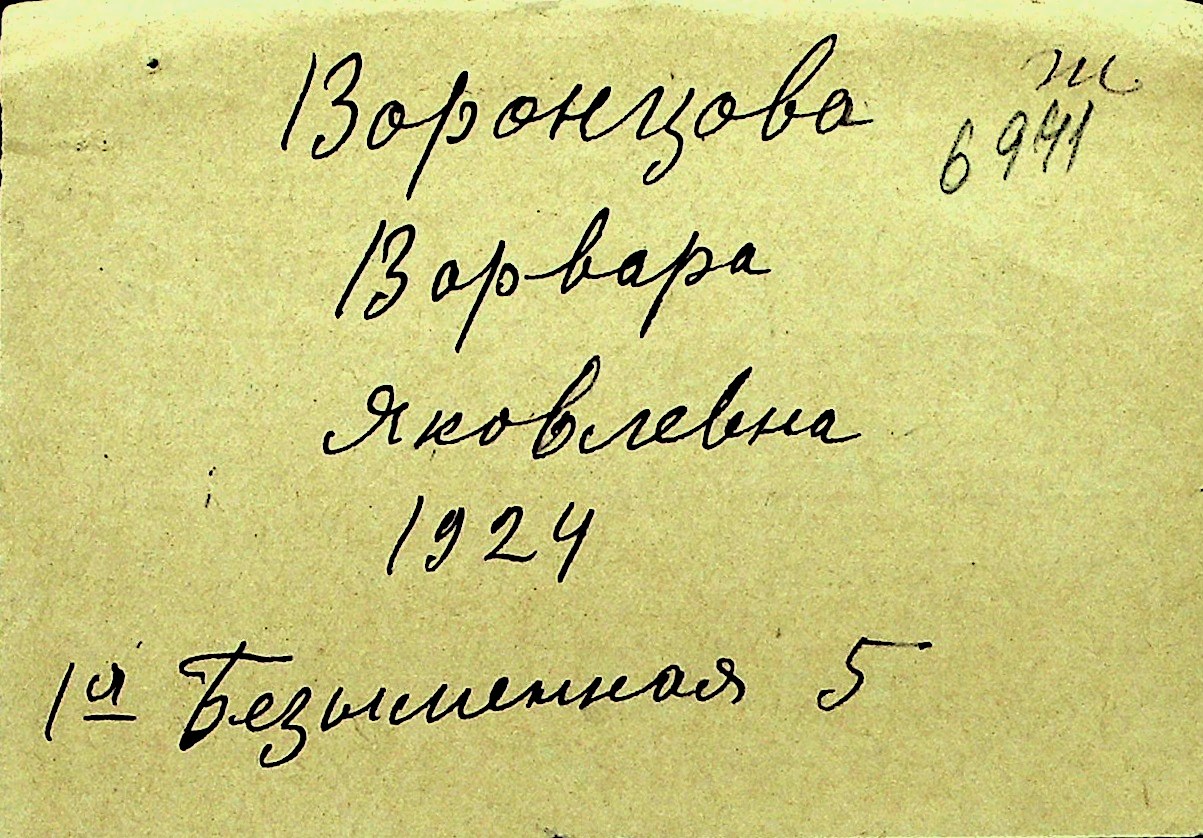 Воронцова
Варвара
Яковлевна
1924
1я Безыменная 5